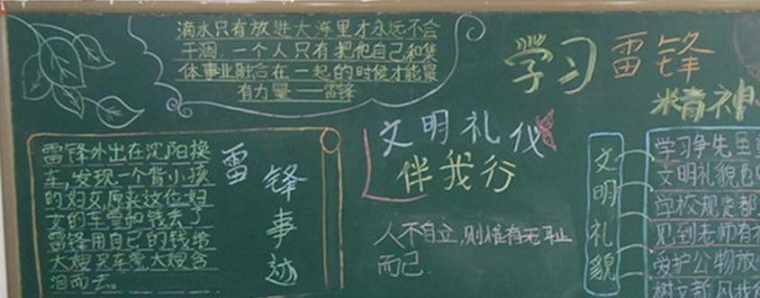 滴水只有放进大海里才永远不会
干涸,一个人只有把他自己和集
体事业融合在一起的时候才能最
有力量——雷锋
学习雷锋
精神
雷锋事迹
雷锋外出在沈阳换
车,发现一个背小孩
的妇女原来这位妇
女的车票和钱丢了
雷锋用自己的钱给
大嫂买车票大嫂含
泪而去。
文明礼仪
伴我行
人不自立,则惟有无耻
而已
文明礼貌
学习争先
文明礼貌
学校规定都
见到老师有
爱护公物放
树立新风我